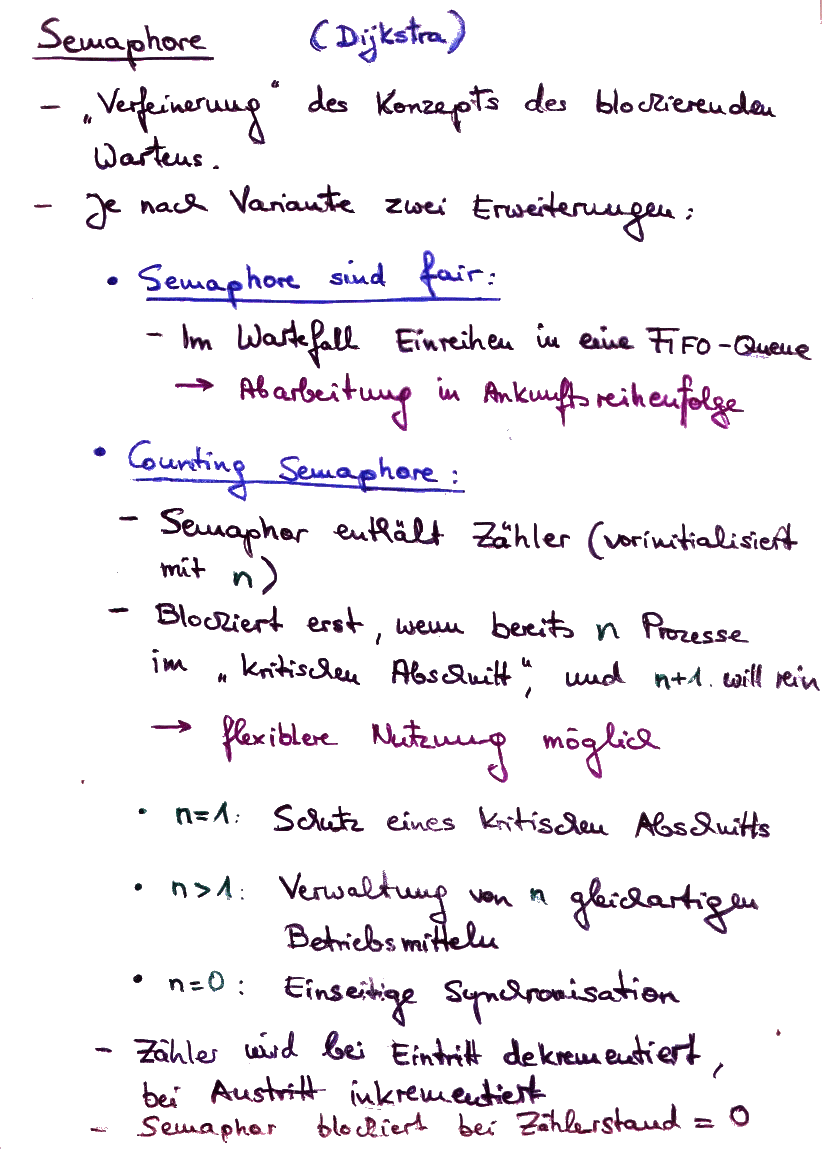 Semaphore (Dijkstra)
- „Verfeinerung" des Konzepts des blockierenden
Wartens.
- Je nach Variante zwei Erweiterungen:
• Semaphore sind fair:
- Im Wartefall Einreihen in eine FIFO-Queue
→ Abarbeitung in Ankunftsreihenfolge
• Counting Semaphore:
- Semaphor enthält Zähler (vorinitialisiert
mit n)
- Blockiert erst, wenn bereits n Prozesse
im „kritischen Abschnitt", und n+1. will rein
→ flexiblere Nutzung möglich
• n=1: Schutz eines kritischen Abschnitts
• n>1: Verwaltung von n gleichartigen
Betriebsmitteln
• n=0: Einseitige Synchronisation
- Zähler wird bei Eintritt dekrementiert,
bei Austritt inkrementiert
- Semaphor blockiert bei Zählerstand = 0